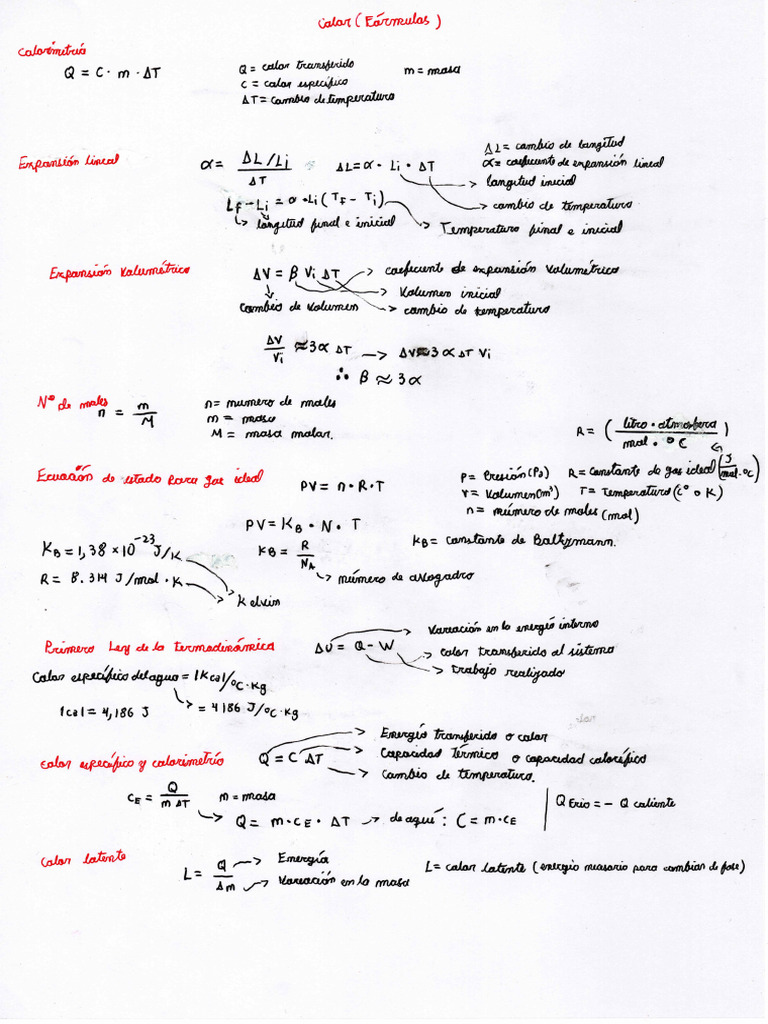 Calor (Fórmulas)
Calorimetría
Q = C · m · ΔT
Q = calor transferido
m = masa
C = calor específico
ΔT = cambio de temperatura
Expansión lineal
α = (ΔL/Li) / ΔT
ΔL = α · Li · ΔT
ΔL = cambio de longitud
α = coeficiente de expansión lineal
longitud inicial
cambio de temperatura
Lf - Li = α · Li (Tf - Ti)
longitud final e inicial
Temperatura final e inicial
Expansión Volumétrica
ΔV = β Vi ΔT
coeficiente de expansión volumétrica
Volumen inicial
cambio de Volumen
cambio de temperatura
ΔV / Vi ≈ 3α ΔT → ΔV ≈ 3α ΔT Vi
∴ β ≈ 3α
Nº de moles
n = m / M
n = numero de moles
m = masa
M = masa molar.
R = (litro · atmosfera / mol · ºC)
Ecuación de estado para gas ideal
PV = n · R · T
P = Presión (Pa)
R = constante de gas ideal (J / mol · ºC)
V = Volumen (m³)
T = Temperatura (Cº o K)
n = número de moles (mol)
PV = KB · N · T
KB = 1,38 × 10⁻²³ J/K
KB = R / NA
KB = constante de Boltzmann.
R = 8.314 J/mol · K
número de avogadro
Kelvin
Primera Ley de la termodinámica
ΔU = Q - W
Variación en la energía interna
calor transferido al sistema
trabajo realizado
Calor específico del agua = 1 Kcal/ºC · Kg
1 cal = 4,186 J
= 4186 J/ºC · Kg
calor específico y calorimetría
Q = C ΔT
Energía transferida o calor
Capacidad térmica o capacidad calorífica
Cambio de temperatura.
CE = Q / m ΔT
m = masa
Q = m · CE · ΔT → de aquí: C = m · CE
Q Frío = - Q caliente
Calor latente
L = Q / Δm
Energía
Variación en la masa
L = calor latente (energía necesaria para cambiar de fase)